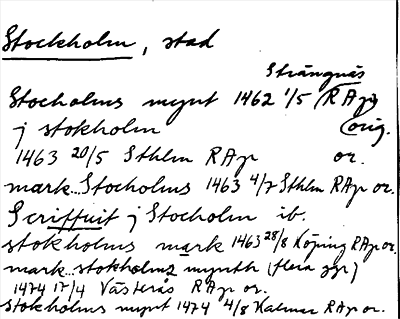 Stockholm, stad
Strängnäs
Stocholms mynt 1462 1/5 (RAp
j stokholm orig.
1463 20/5 Sthlm RAp or.
mark... Stocholms 1463 4/7 Sthlm RAp or.
Scriffuit j Stocholm ib.
stokholms mark 1463 28/8 Köping RAp or.
mark.. stokholms mynth (flera ggr)
1474 17/4 Västerås RAp or.
stokholms mynt 1474 4/8 Kalmar RAp or.